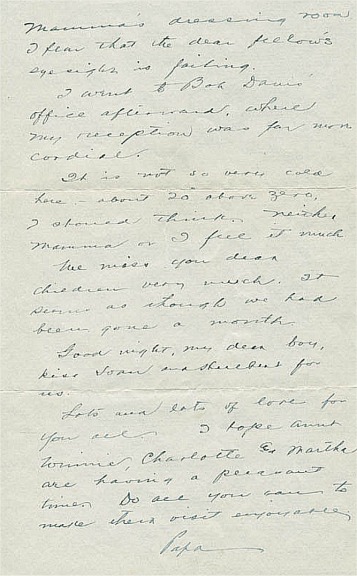 Mamma's dressing room
I fear that the dear fellow's
eyesight is failing.
I went to Bob Davis'
office afterward, where
my reception was far more
cordial.
It is not so very cold
here - about 20° above zero,
I should think. Neither
Mamma or I feel it much
We miss you dear
children very much. It
seems as though we had
been gone a month.
Good night, my dear boy,
kiss Joan and Hulbert for
us.
Lots and lots of love for
you all. I hope Aunt
Winnie, Charlotte & Martha
are having a pleasant
time. Do all you can to
make their visit enjoyable.
Papa